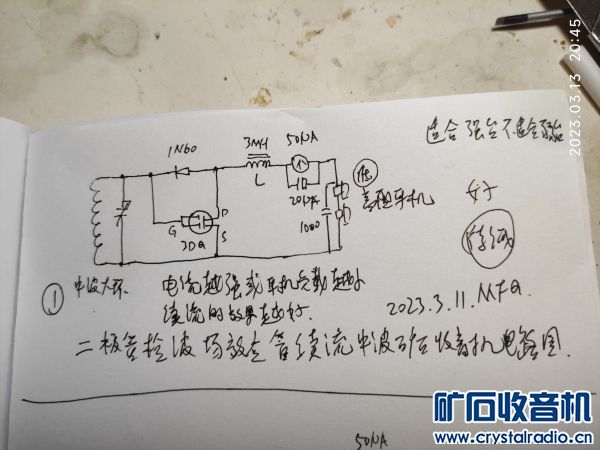 2023.03.13 20:45
适合强台不适合弱台
1N60
3MH
50UA
L
201
1000
低
高阻耳机
好
G
D
S
3DQ
①
中波大环
电流越强或耳机负载越小
续流的效果越好.
2023.3.11.MFQ.
二极管检波场效应管续流中波矿石收音机电路图.
50UA
矿石收音机
www.crystalradio.cn